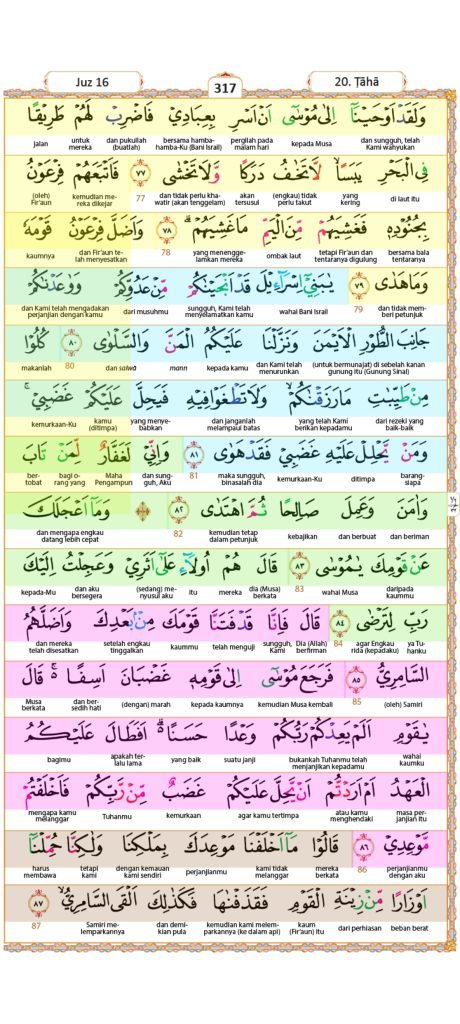 Juz 16
317
20. Ṭāhā
وَلَقَدْ اَوْحَيْنَآ اِلٰى مُوْسٰٓى اَنْ اَسْرِ بِعِبَادِيْ فَاضْرِبْ لَهُمْ طَرِيْقًا
dan sungguh, telah Kami wahyukan kepada Musa pergilah pada malam hari bersama hamba-hamba-Ku (Bani Israil) dan pukullah (buatlah) untuk mereka jalan
فِى الْبَحْرِ يَبَسًاۙ لَّا تَخٰفُ دَرَكًا وَّلَا تَخْشٰى ٧٧ فَاَتْبَعَهُمْ فِرْعَوْنُ
di laut itu yang kering (engkau) tidak perlu takut akan tersusul dan tidak perlu khawatir (akan tenggelam) 77 kemudian mereka dikejar (oleh) Fir'aun
بِجُنُوْدِهٖ فَغَشِيَهُمْ مِّنَ الْيَمِّ مَا غَشِيَهُمْۗ ٧٨ وَاَضَلَّ فِرْعَوْنُ قَوْمَهٗ
bersama bala tentaranya tetapi Fir'aun dan tentaranya digulung ombak laut yang menenggelamkan mereka 78 dan Fir'aun telah menyesatkan kaumnya
وَمَا هَدٰى ٧٩ يٰبَنِيْٓ اِسْرَاۤءِيْلَ قَدْ اَنْجَيْنٰكُمْ مِّنْ عَدُوِّكُمْ وَوٰعَدْنٰكُمْ
dan tidak memberi petunjuk 79 wahai Bani Israil sungguh, Kami telah menyelamatkan kamu dari musuhmu dan Kami telah mengadakan perjanjian dengan kamu
جَانِبَ الطُّوْرِ الْاَيْمَنَ وَنَزَّلْنَا عَلَيْكُمُ الْمَنَّ وَالسَّلْوٰى ٨٠ كُلُوْا
(untuk bermunajat) di sebelah kanan gunung itu (Gunung Sinai) dan Kami telah menurunkan kepada kamu mann dan salwa 80 makanlah
مِنْ طَيِّبٰتِ مَا رَزَقْنٰكُمْۙ وَلَا تَطْغَوْا فِيْهِ فَيَحِلَّ عَلَيْكُمْ غَضَبِيْۚ
dari rezeki yang baik-baik yang telah Kami berikan kepadamu dan janganlah melampaui batas yang menyebabkan kamu (ditimpa) kemurkaan-Ku
وَمَنْ يَّحْلِلْ عَلَيْهِ غَضَبِيْ فَقَدْ هَوٰى ٨١ وَاِنِّيْ لَغَفَّارٌ لِّمَنْ تَابَ
barangsiapa ditimpa kemurkaan-Ku maka sungguh, binasalah dia 81 dan sungguh, Aku Maha Pengampun bagi orang yang bertobat
وَاٰمَنَ وَعَمِلَ صَالِحًا ثُمَّ اهْتَدٰى ٨٢ وَمَآ اَعْجَلَكَ
dan beriman dan berbuat kebajikan kemudian tetap dalam petunjuk 82 dan mengapa engkau datang lebih cepat
عَنْ قَوْمِكَ يٰمُوْسٰى ٨٣ قَالَ هُمْ اُولَاۤءِ عَلٰٓى اَثَرِيْ وَعَجِلْتُ اِلَيْكَ
daripada kaummu wahai Musa 83 dia (Musa) berkata mereka itu (sedang) menyusul aku dan aku bersegera kepada-Mu
رَبِّ لِتَرْضٰى ٨٤ قَالَ فَاِنَّا قَدْ فَتَنَّا قَوْمَكَ مِنْۢ بَعْدِكَ وَاَضَلَّهُمُ
ya Tuhanku agar Engkau rida (kepadaku) 84 Dia (Allah) berfirman sungguh, Kami telah menguji kaummu setelah engkau tinggalkan dan mereka telah disesatkan
السَّامِرِيُّ ٨٥ فَرَجَعَ مُوْسٰٓى اِلٰى قَوْمِهٖ غَضْبَانَ اَسِفًا ەۚ قَالَ
(oleh) Samiri 85 kemudian Musa kembali kepada kaumnya (dengan) marah dan bersedih hati Musa berkata
يٰقَوْمِ اَلَمْ يَعِدْكُمْ رَبُّكُمْ وَعْدًا حَسَنًا ەۗ اَفَطَالَ عَلَيْكُمُ
wahai kaumku bukankah Tuhanmu telah menjanjikan kepadamu suatu janji yang baik apakah terlalu lama bagimu
الْعَهْدُ اَمْ اَرَدْتُّمْ اَنْ يَّحِلَّ عَلَيْكُمْ غَضَبٌ مِّنْ رَّبِّكُمْ فَاَخْلَفْتُمْ
masa perjanjian itu atau kamu menghendaki agar kamu tertimpa kemurkaan Tuhanmu mengapa kamu melanggar
مَّوْعِدِيْ ٨٦ قَالُوْا مَآ اَخْلَفْنَا مَوْعِدَكَ بِمَلْكِنَا وَلٰكِنَّا حُمِّلْنَآ
perjanjianmu dengan aku 86 mereka berkata kami tidak melanggar perjanjianmu dengan kemauan kami sendiri tetapi kami harus membawa
اَوْزَارًا مِّنْ زِيْنَةِ الْقَوْمِ فَقَذَفْنٰهَا فَكَذٰلِكَ اَلْقَى السَّامِرِيُّ ۙ ٨٧
beban berat dari perhiasan kaum (Fir'aun) itu kemudian kami melemparkannya (ke dalam api) dan demikian pula Samiri melemparkannya 87